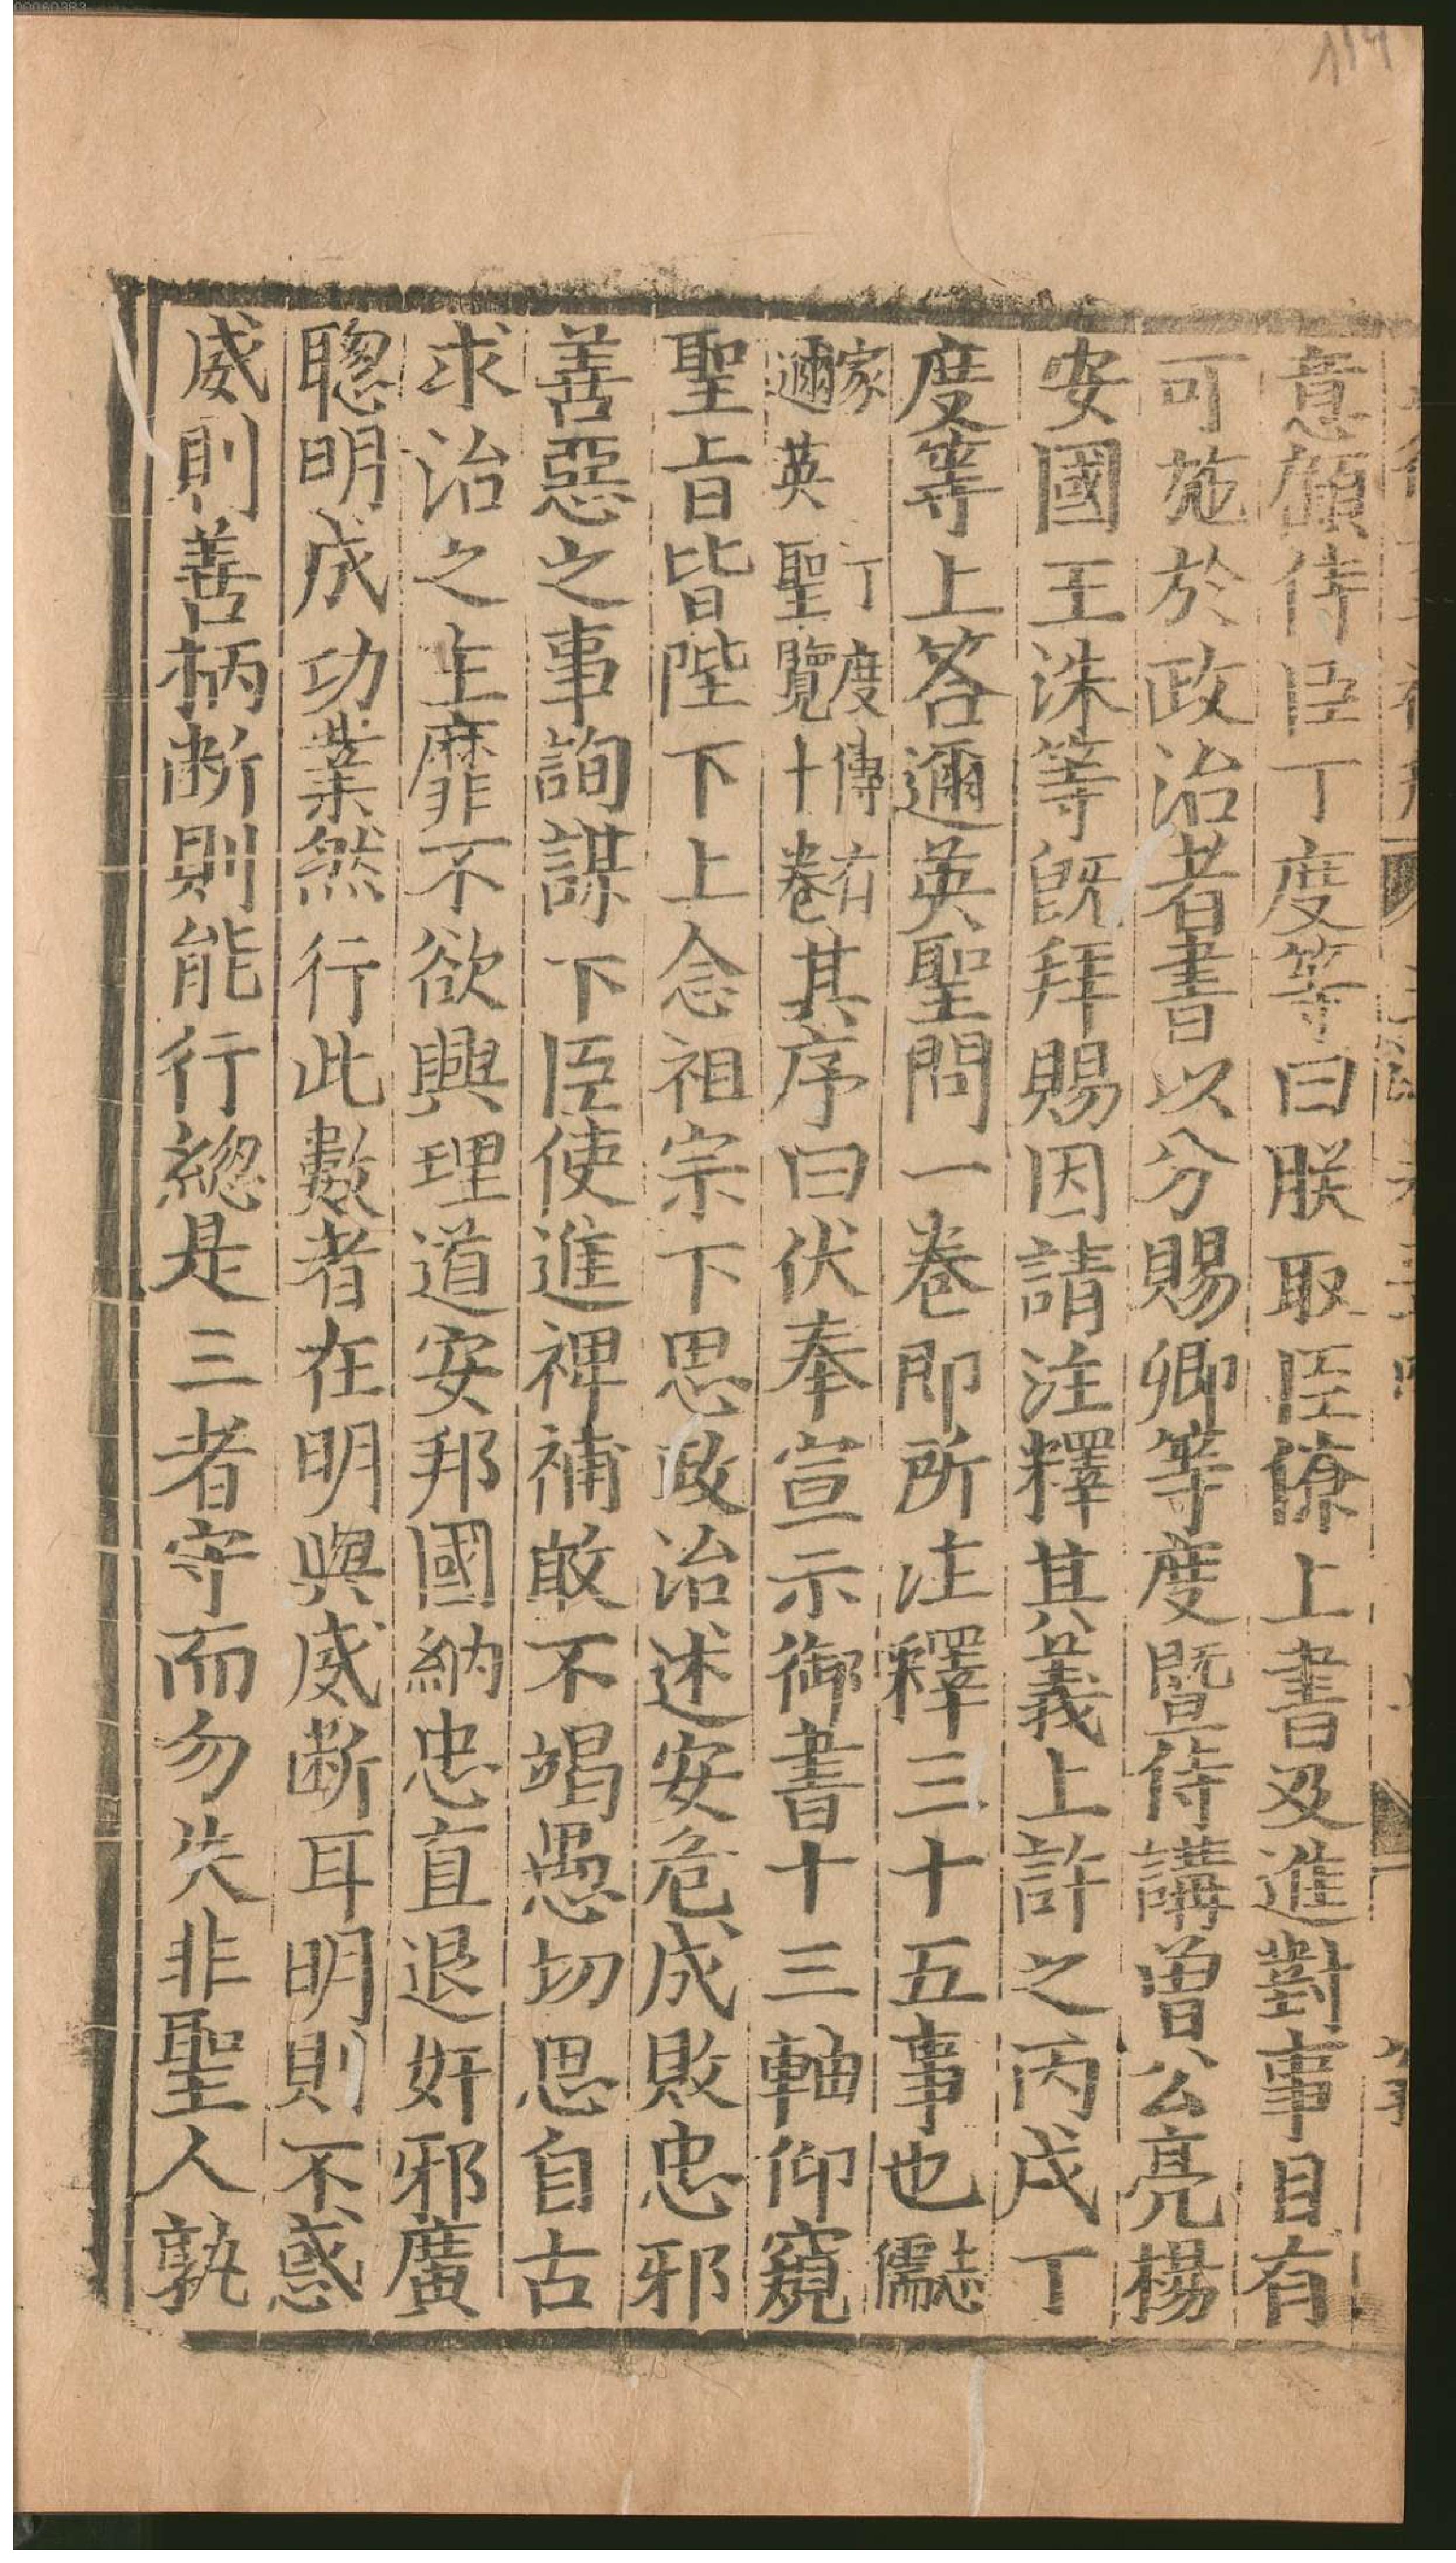 意顧侍臣丁度等曰朕取臣僚上書及進對事目有
可施於政治者書以分賜卿等度暨侍講曾公亮楊
安國王洙等旣拜賜因請注釋其義上許之丙戌丁
度等上答邇英聖問一卷即所注釋三十五事也志儒
家 丁度傳右邇英聖覽十卷其序曰伏奉宣示御書十三軸仰窺
聖旨皆陛下上念祖宗下思政治述安危成敗忠邪
善惡之事詢謀下臣使進裨補敢不竭愚切思自古
求治之主靡不欲興理道安邦國納忠直退奸邪廣
聦明成功業然行此數者在明與威断耳明則不惑
威則善柄断則能行緫是三者守而勿失非聖人孰